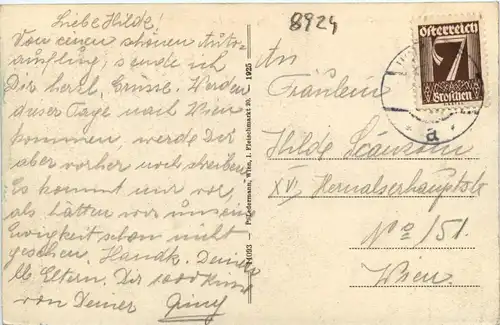 Liebe Hilde!
Von einem schönen Auto-
ausflug, sende ich
Dir herzl. Grüsse. Werden
dieser Tage nach Wien
kommen, werde Dir
aber vorher noch schreiben.
Es kommt mir vor,
als hätten wir uns eine
Ewigkeit schon nicht
gesehen. Handk. Deinen
lb Eltern. Dir 1000 Küsse
von Deiner
8924
Österreich
7
Groschen
a
An
Fräulein
Hilde
XVI, Hernalserhauptstr
No 151.
Wien.
P. Ledermann, Wien, I. Fleischmarkt 20. 1925